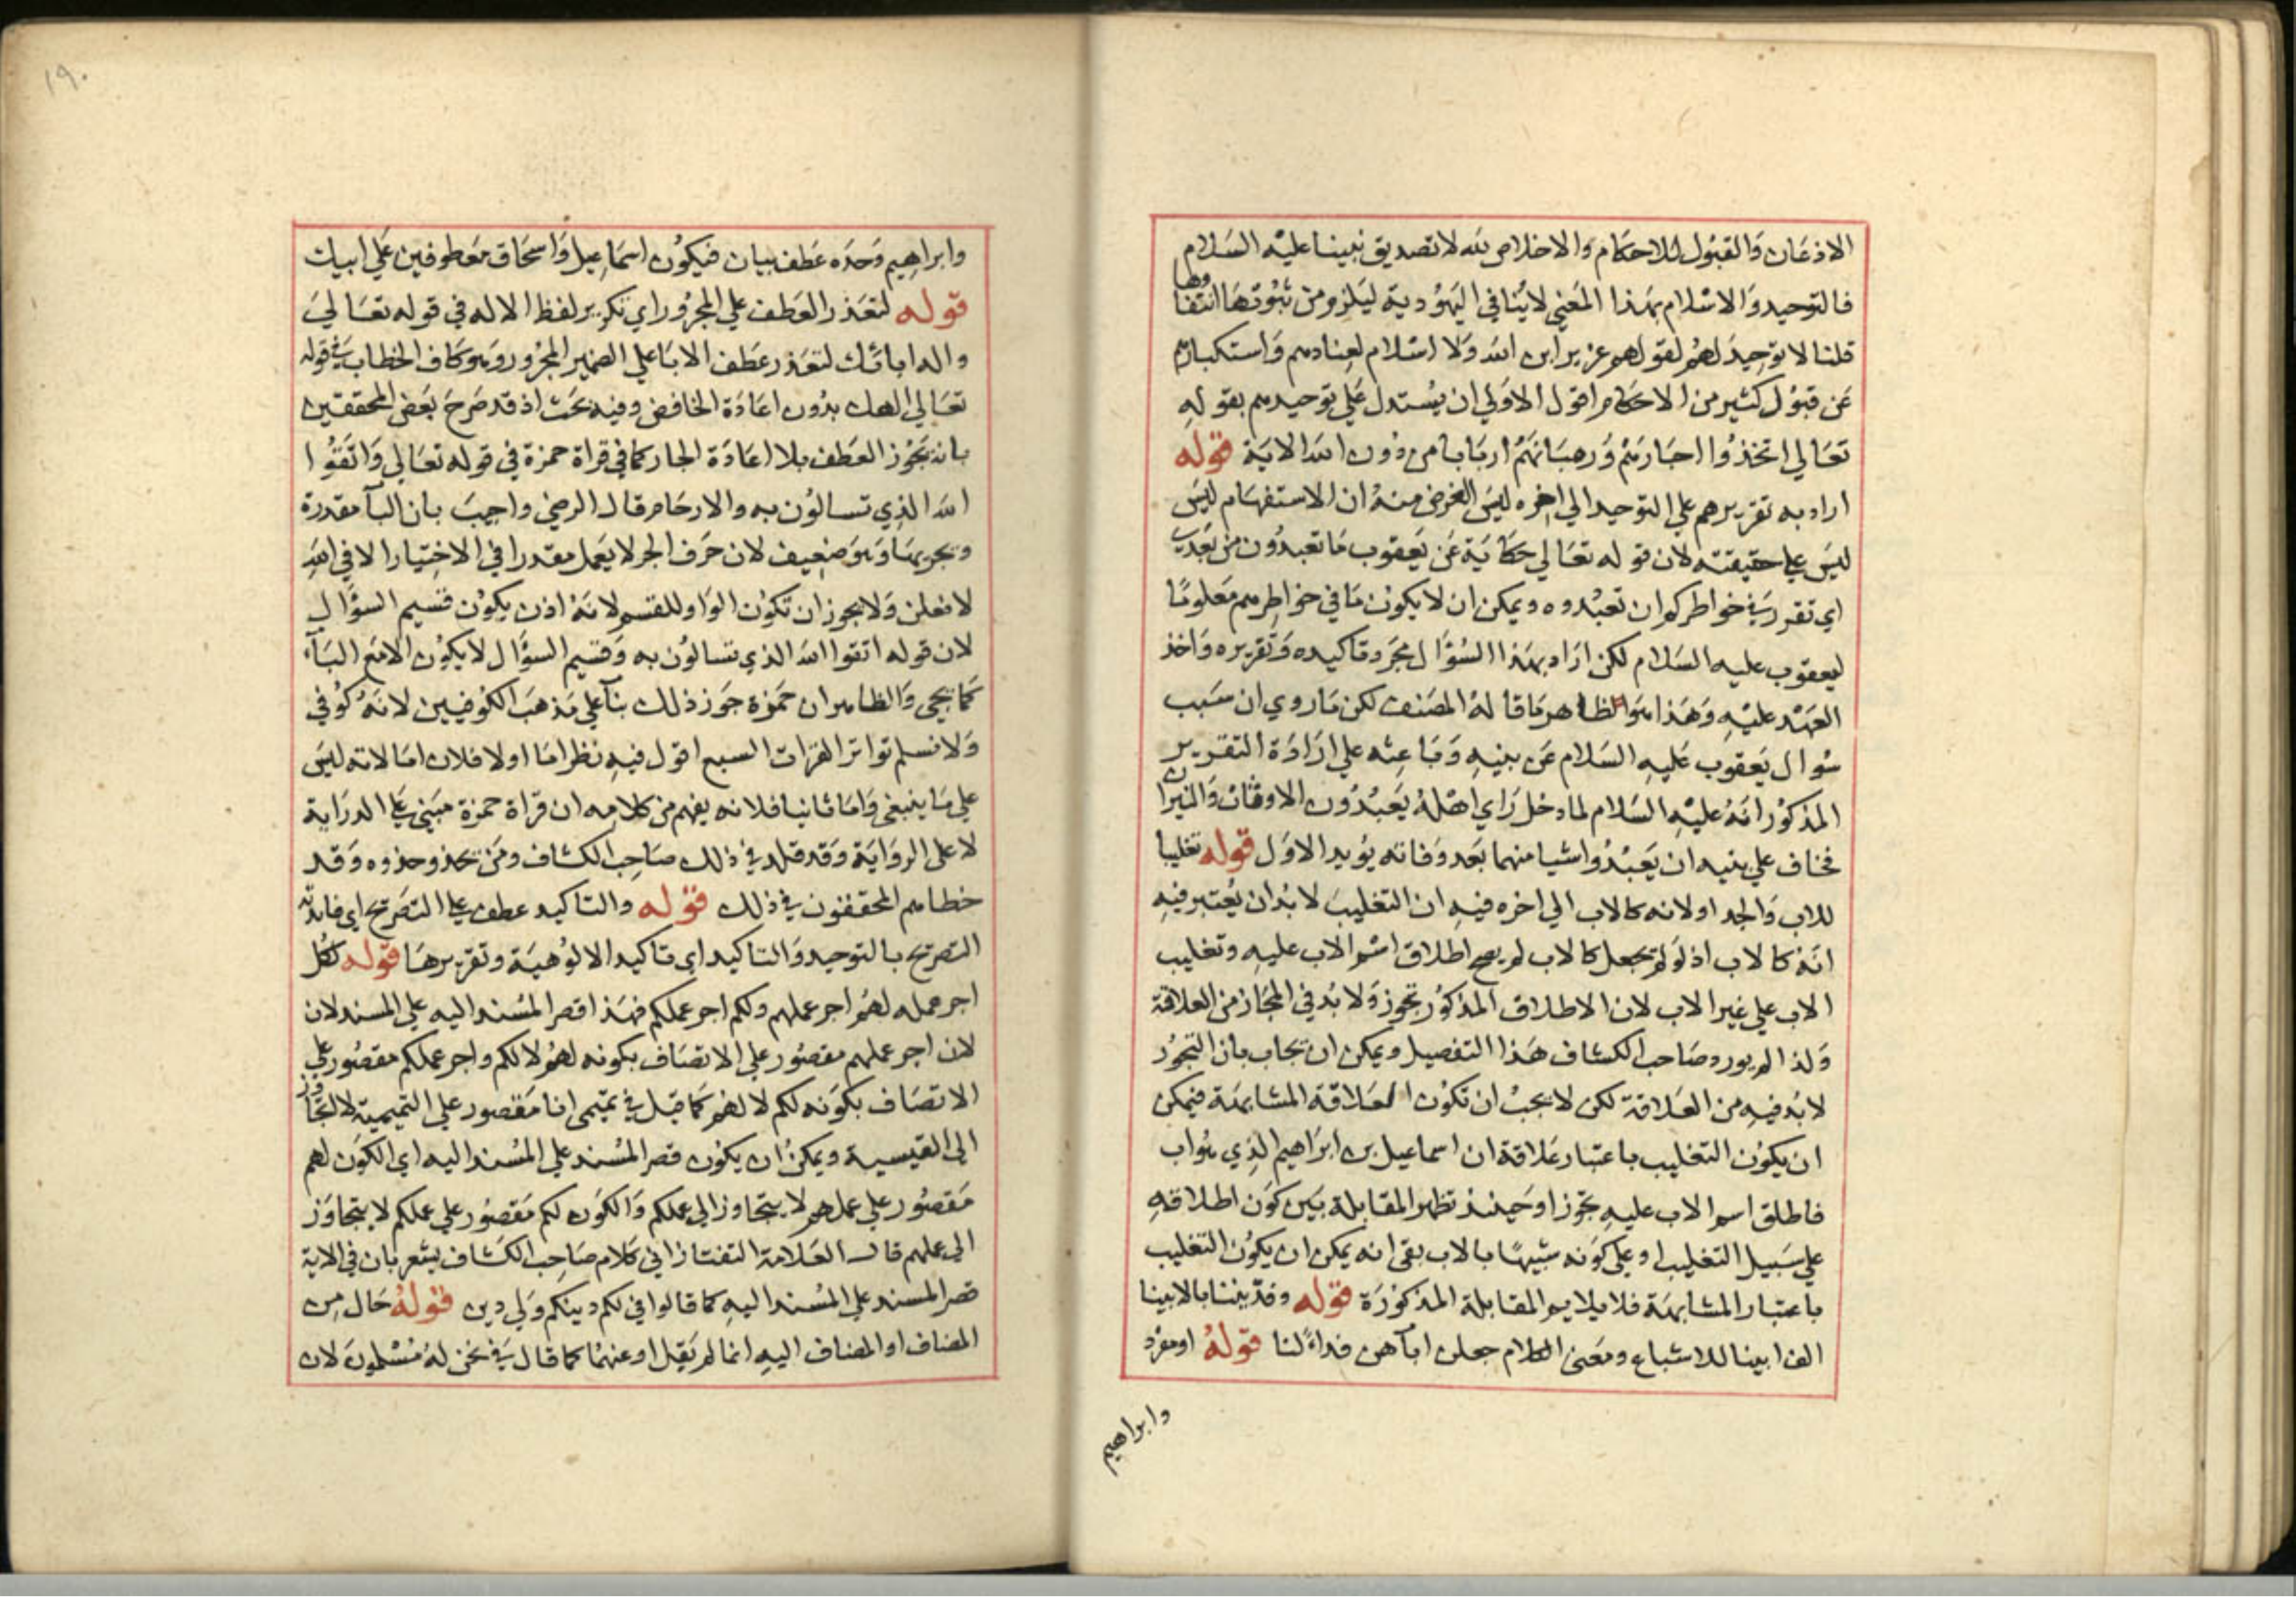 الاذعان والقبول للاحكام والاخلاص لله لا تصديق نبينا عليه السلام
فالتوحيد والاسلام بهذا المعني لا ينافي اليهودية ليلزم من ثبوتها انتفاوها
قلنا لا توحيد لهم لقولهم عزير ابن الله ولا اسلام لعنادهم واستكبارهم
عن قبول كثير من الاحكام اقول الاولي ان يستدل علي توحيدهم بقوله
تعالي اتخذوا احبارهم ورهبانهم اربابا من دون الله الاية قوله
اراد به تقريرهم علي التوحيد الي اخره ليس الغرض منه ان الاستفهام ليس
ليس علي حقيقته لان قوله تعالي حكاية عن يعقوب ما تعبدون من بعدي
اي تقرر في خواطركم ان تعبدوه ويمكن ان لا يكون ما في خواطرهم معلوما
ليعقوب عليه السلام لكن اراد بهذا السؤال مجرد تاكيده وتقريره واخذ
العهد عليه وهذا هو الظاهر ما قاله المصنف لكن ما روي ان سبب
سؤال يعقوب عليه السلام عن بنيه وباعثه علي ارادة التقرير
المذكور انه عليه السلام لما دخل راي اهله يعبدون الاوثان والنيران
فخاف علي بنيه ان يعبدوا شيا منهما بعد وفاته يؤيد الاول قوله تغليبا
للاب والجد او لانه كالاب الي اخره فيه ان التغليب لا بد ان يعتبر فيه
انه كالاب اذ لو لم يجعل كالاب لم يصح اطلاق اسم الاب عليه وتغليب
الاب علي غير الاب لان الاطلاق المذكور تجوز ولا بد في المجاز من العلاقة
ولذا لم يورد صاحب الكشاف هذا التفصيل ويمكن ان يجاب بان التجوز
لا بد فيه من العلاقة لكن لا يجب ان تكون العلاقة المشابهة فيمكن
ان يكون التغليب باعتبار علاقة ان اسماعيل بن ابراهيم الذي هو اب
فاطلق اسم الاب عليه تجوزا وحينئذ تظهر المقابلة بين كون اطلاقه
علي سبيل التغليب او علي كونه شبيها بالاب بقي انه يمكن ان يكون التغليب
باعتبار المشابهة فلا يلايم المقابلة المذكورة قوله وفديننا بالابينا
الف ابينا للاشباع ومعني الكلام جعلن اباهن فداء لنا قوله او مفرد
وابراهيم
١٩٠
وابراهيم وحده عطف بيان فيكون اسماعيل واسحاق معطوفين علي ابيك
قوله لتعذر العطف علي المجرور اي تكرير لفظ الاله في قوله تعالي
واله ابائك لتعذر عطف الابا علي الضمير المجرور وهو كاف الخطاب في قوله
تعالي الهك بدون اعادة الخافض وفيه بحث اذ قد صرح بعض المحققين
بانه يجوز العطف بلا اعادة الجار كما في قراة حمزة في قوله تعالي واتقوا
الله الذي تسالون به والارحام قال الرضي واجيب بان البآ مقدرة
ويجر بها وهو ضعيف لان حرف الجر لا يعمل مقدرا في الاختيار الا في الله
لافعلن ولا يجوز ان تكون الواو للقسم لانه اذن يكون قسيم السؤال
لان قوله اتقوا الله الذي تسالون به وقسيم السؤال لا يكون الا مع البآء
كما يجي والظاهر ان حمزة جوز ذلك بنآ علي مذهب الكوفيين لانه كوفي
ولا نسلم تواتر القرات السبع اقول فيه نظر اما اولا فلان امالاته ليس
علي ما ينبغي واما ثانيا فلانه يفهم من كلامه ان قراة حمزة مبني علي الدراية
لا علي الرواية وقد قلد في ذلك صاحب الكشاف ومن يحذو حذوه وقد
خطاهم المحققون في ذلك قوله والتاكيد عطف علي التصريح اي فايدته
التصريح بالتوحيد والتاكيد اي تاكيد الالوهية وتقريرها قوله لكل
اجر عمله لهم اجر عملهم ولكم اجر عملكم فهذا قصر المسند اليه علي المسند لان
لان اجر عملهم مقصور علي الاتصاف بكونه لهم لا لكم واجر عملكم مقصور علي
الاتصاف بكونه لكم لا لهم كما قيل في تميمي انا مقصور علي التميمية لا يتجاوز
الي القيسية ويمكن ان يكون قصر المسند علي المسند اليه اي الكون لهم
مقصور علي عملهم لا يتجاوز الي عملكم والكون لكم مقصور علي عملكم لا يتجاوز
الي عملهم قال العلامة التفتازاني كلام صاحب الكشاف يشعر بان في الاية
قصر المسند علي المسند اليه كما قالوا في لكم دينكم ولي دين قوله حال من
المضاف او المضاف اليه انما لم يقل او عنهما كما قال في نحن له مسلمون لان